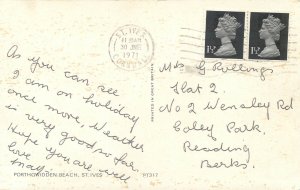 ST. IVES
11 30AM
30 JUNE
1971
CORNWALL
1½P
1½P
As you can see
I am on holiday
once more. Weather
is very good so far.
Hope you are well
love
Mrs G Rollings
Flat 2
No 2 Wensley Rd
Coley Park,
Reading
Berks.
PRINTED IN GREAT BRITAIN
PORTHGWIDDEN BEACH, ST. IVES
PT317